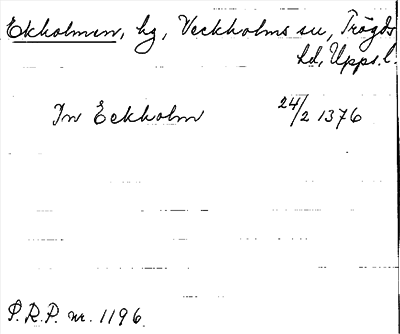 Ekholmen, hg, Veckholms sn, Trögds
hd, Upps. l.
In Eckholm 24/2 1376
P.R.P. nr. 1196.